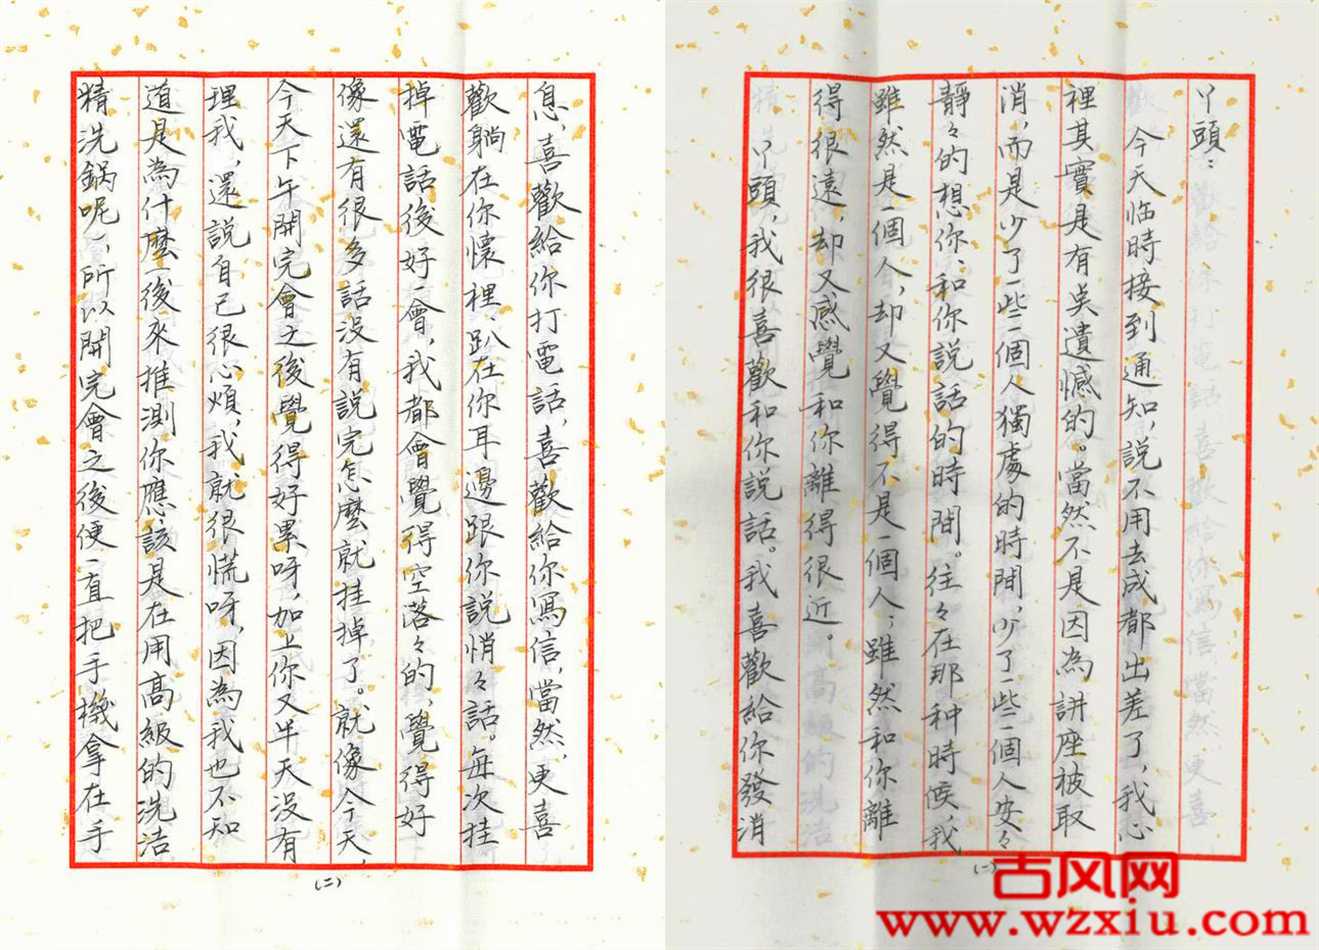 丫頭：
今天临時接到通知，説不用去成都出差了，我心
裡其實是有点遺憾的。當然不是因為講座被取
消，而是少了一些一個人獨處的時間，少了一些一個人安々
靜々的想你、和你説話的時間。往々在那种時候，我
雖然是一個人，却又覺得不是一個人；雖然和你離
得很遠，却又感覺和你離得很近。
丫頭，我很喜歡和你説話。我喜歡給你發消
(一)
息，喜歡給你打電話，喜歡給你寫信，當然，更喜
歡躺在你懷裡，趴在你耳邊跟你説悄々話。每次挂
掉電話後好一會，我都會覺得空落々的，覺得好
像還有很多話没有説完怎麽就挂掉了。就像今天，
今天下午開完會之後覺得好累呀，加上你又半天没有
理我，還説自己很心煩，我就很慌呀，因為我也不知
道是為什麽（後來推測你應該是在用高級的洗洁
精洗鍋呢），所以開完會之後便一直把手機拿在手
(二)
古风网
www.wzxiu.com